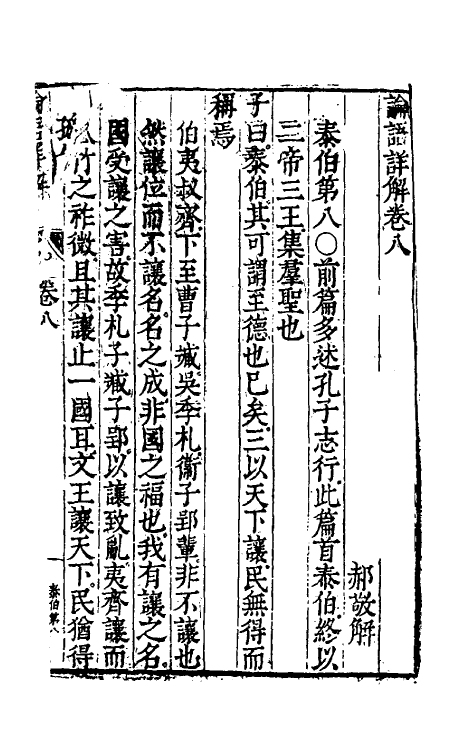 論語詳解卷八
郝敬解
泰伯第八○前篇多述孔子志行此篇首泰伯終以
三帝三王集羣聖也
子曰泰伯其可謂至德也已矣三以天下讓民無得而
稱焉
伯夷叔齊下至曹子臧吳季札衞子郢輩非不讓也
然讓位而不讓名名之成非國之福也我有讓之名
國受讓之害故季札子臧子郢以讓致亂夷齊讓而
孤竹之祚微且其讓止一國耳文王讓天下民猶得
卷八
泰伯第八